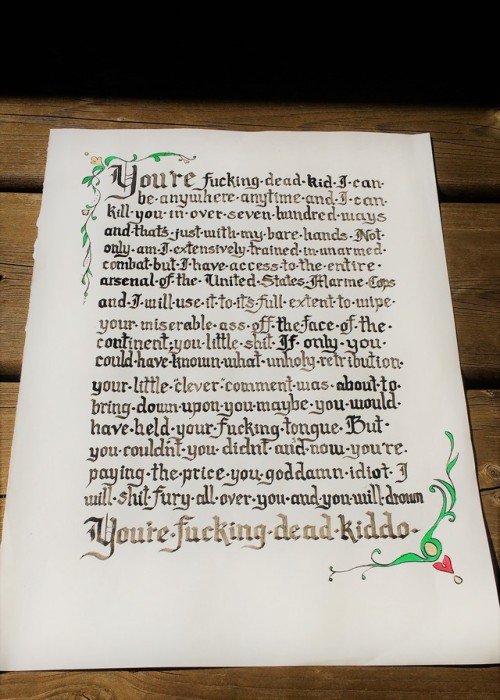 Youre fucking·dead·kid·I·can·
be·anywhere·anytime·and·I·can·
kill·you·in·over·seven·hundred·ways
and·thats·just·with·my·bare·hands·Not·
only·am·I·extensively·trained·in·unarmed·
combat·but·I·have·access·to·the·entire·
arsenal·of·the·United·States·Marine·Cops
and·I·will·use·it·to·it's·full·extent·to·wipe·
your·miserable·ass·off·the·face·of·the·
continent,you·little·shit·If·only·you·
could·have·known·what·unholy·retribution·
your·little·"clever"·comment·was·about·to·
bring·down·upon·you·maybe·you·would·
have·held·your·fucking·tongue·But·
you·couldn't·you·didn't·and·now·you're·
paying·the·price·you·goddamn·idiot·I
will·shit·fury·all·over·you·and·you·will·drown
Youre·fucking·dead·kiddo·